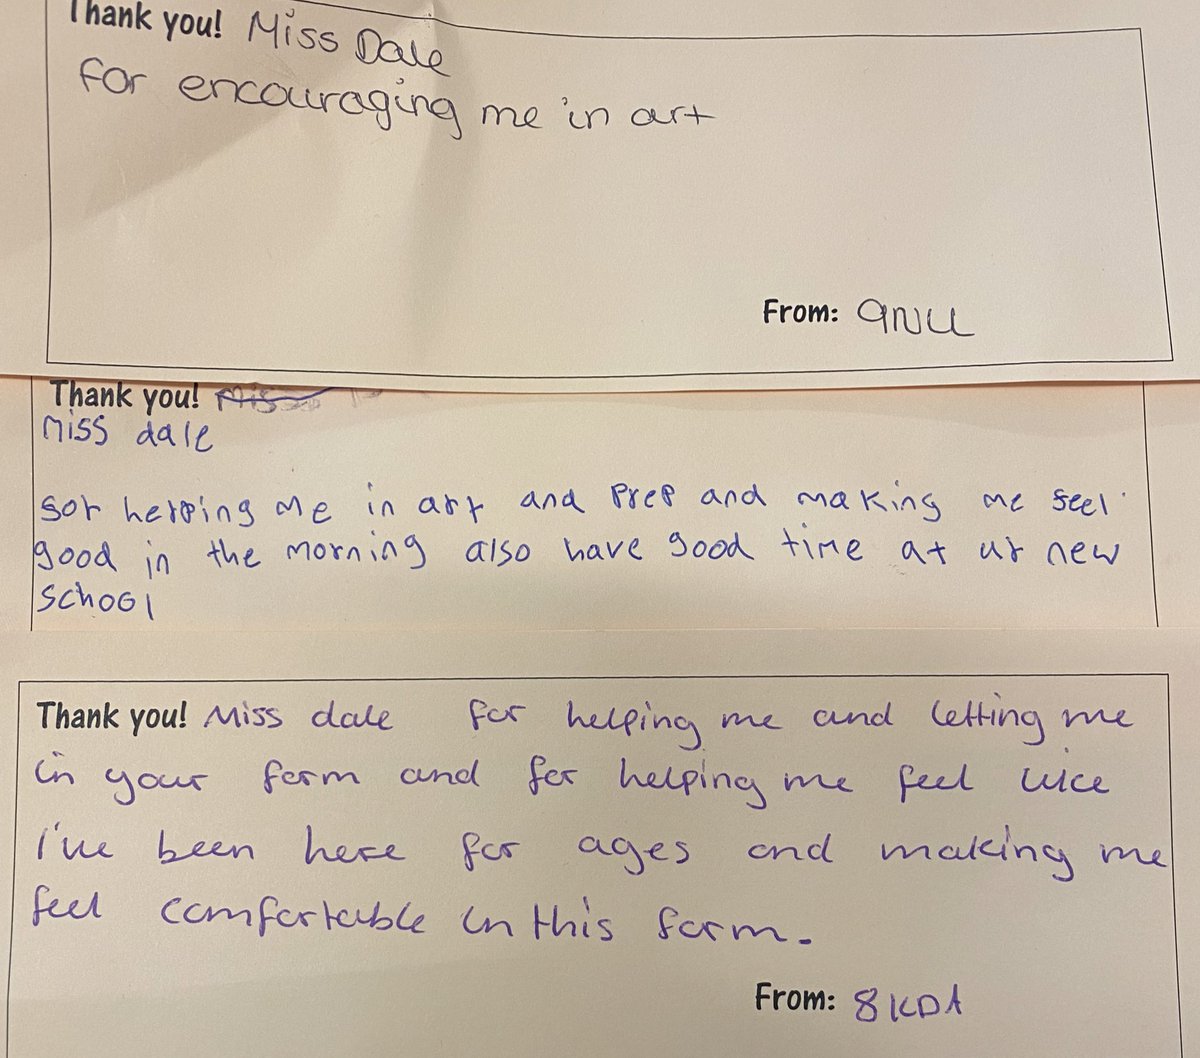 Thank you! Miss Dale
for encouraging me in art
From: 9NU
Thank you! Miss
miss dale
for helping me in art and prep and making me feel
good in the morning also have good time at ur new
school
Thank you! Miss dale for helping me and letting me
in your form and for helping me feel like
I've been here for ages and making me
feel comfortable in this form.
From: 8KDA